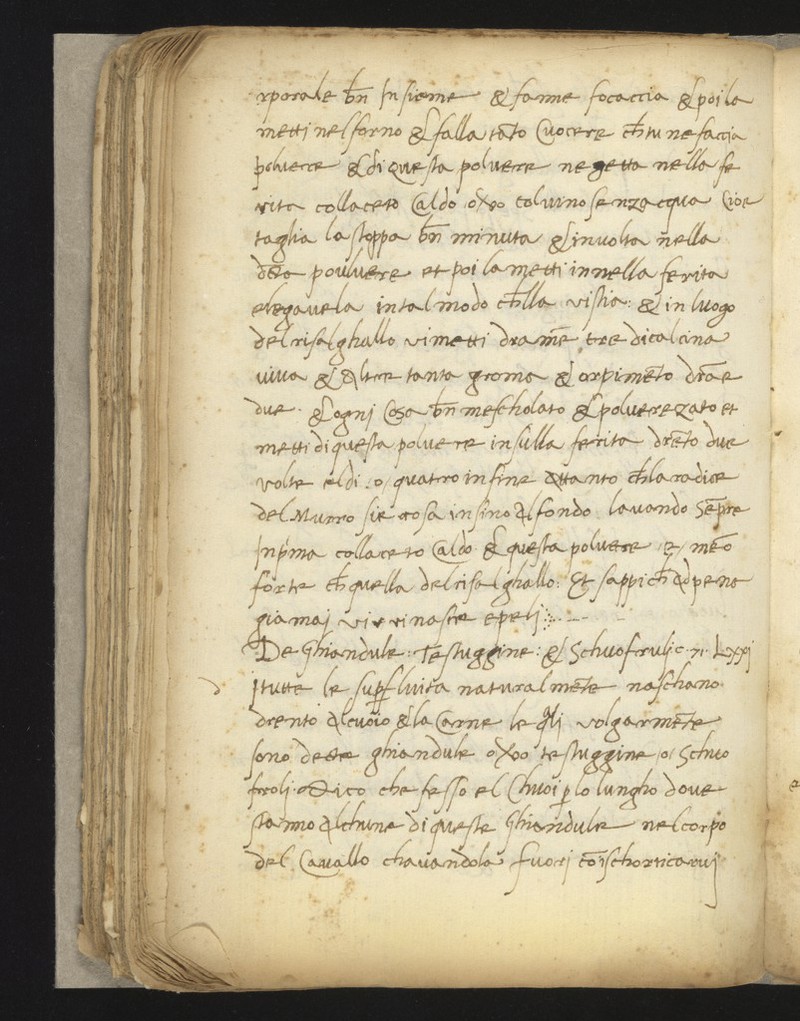 rporale bñ Insieme & fanne focaccia & poi la
metti nel forno & falla tãto Cuocere ch̃ tu ne faccia
poluere & di questa poluere ne getta nella fe
rita collaceto Caldo o/vo coluino senzacqua Cioe
taglia la stoppa bñ minuta & inuolta nella
dc̃ta pouluere et poi la metti innella ferita
e legauela in tal modo ch̃lla vi stia: & in luogo
del risalghallo vi metti dramẽ tre di calcina
uiua & altre tanta groma & orpimẽto drãe
due. & ogni Cosa bñ mescholato & poluerezato et
metti di questa poluere in sulla ferita drẽto due
volte el di .o/ quatro infine attanto ch̃ la radice
del Murro sie rosa insino al fondo lauando Sẽpre
Inp̃ma collaceto Caldo & questa poluere e/ mẽo
forte ch̃ quella del risalghallo. Et sappi ch̃ adpena
gia maj vi rinasce e pelj
De Ghiandule: Testuggine: & Schuofrulj c. n. Lxxj
Itutte le sup̱fluita naturalmẽte naschano
drento al cuoio & la Carne le q̃li volgarmẽte
sono dette ghiandule o/vo testuggine .o/ Schuo
frolj. Dico che fesso el Chuoi p̱ lo lungho doue
stanno alchune di queste Ghiandule nel corpo
del Cauallo chauandola fuorj cõischorticaruj